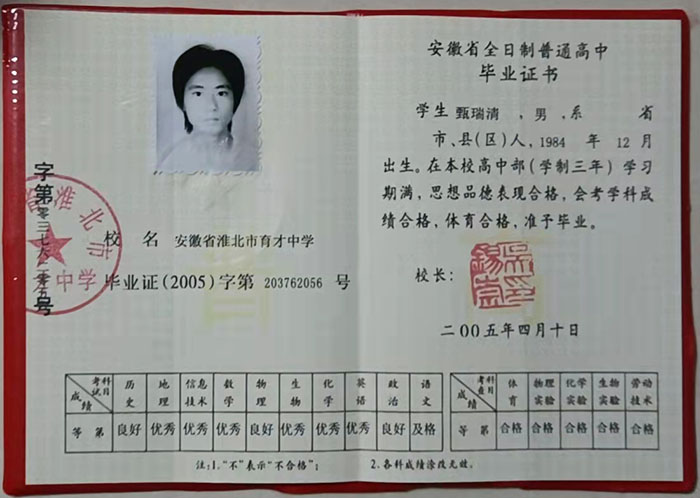 字第二零三七六二零五六号
淮北市
中学
校 名 安徽省淮北市育才中学
毕业证(2005)字第 203762056 号
安徽省全日制普通高中
毕业证书
学生 甄瑞清 ,男,系 省
市、县(区)人,1984 年 12 月
出生。在本校高中部(学制三年)学习
期满,思想品德表现合格,会考学科成
绩合格,体育合格,准予毕业。
校长:
二00五年四月十日
考试科目 成绩 历史 地理 信息技术 数学 物理 生物 化学 英语 政治 语文
等 第 良好 优秀 优秀 优秀 良好 优秀 优秀 优秀 良好 及格
考查科目 成绩 体育 物理实验 化学实验 生物实验 劳动技术
等 第 合格 合格 合格 合格 合格
注:1."不"表示"不合格"; 2.各科成绩涂改无效。